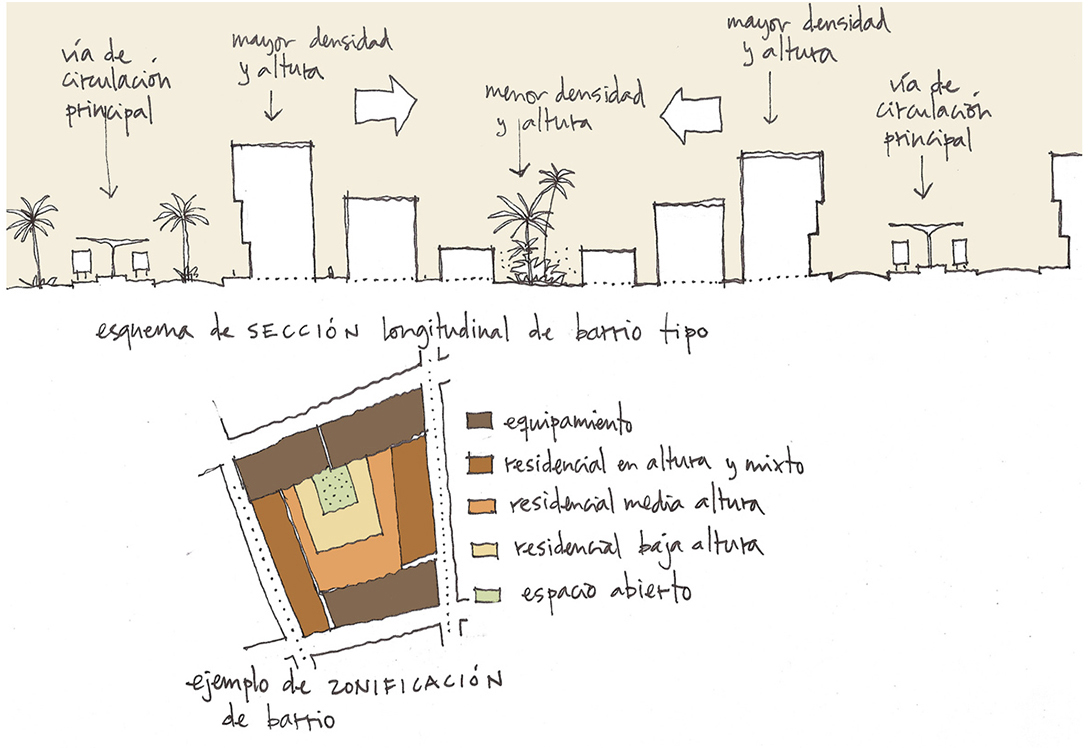 vía de
circulación
principal
mayor densidad
y altura
menor densidad
y altura
mayor densidad
y altura
vía de
circulación
principal
esquema de SECCIÓN longitudinal de barrio tipo
equipamiento
residencial en altura y mixto
residencial media altura
residencial baja altura
espacio abierto
ejemplo de ZONIFICACIÓN
de barrio